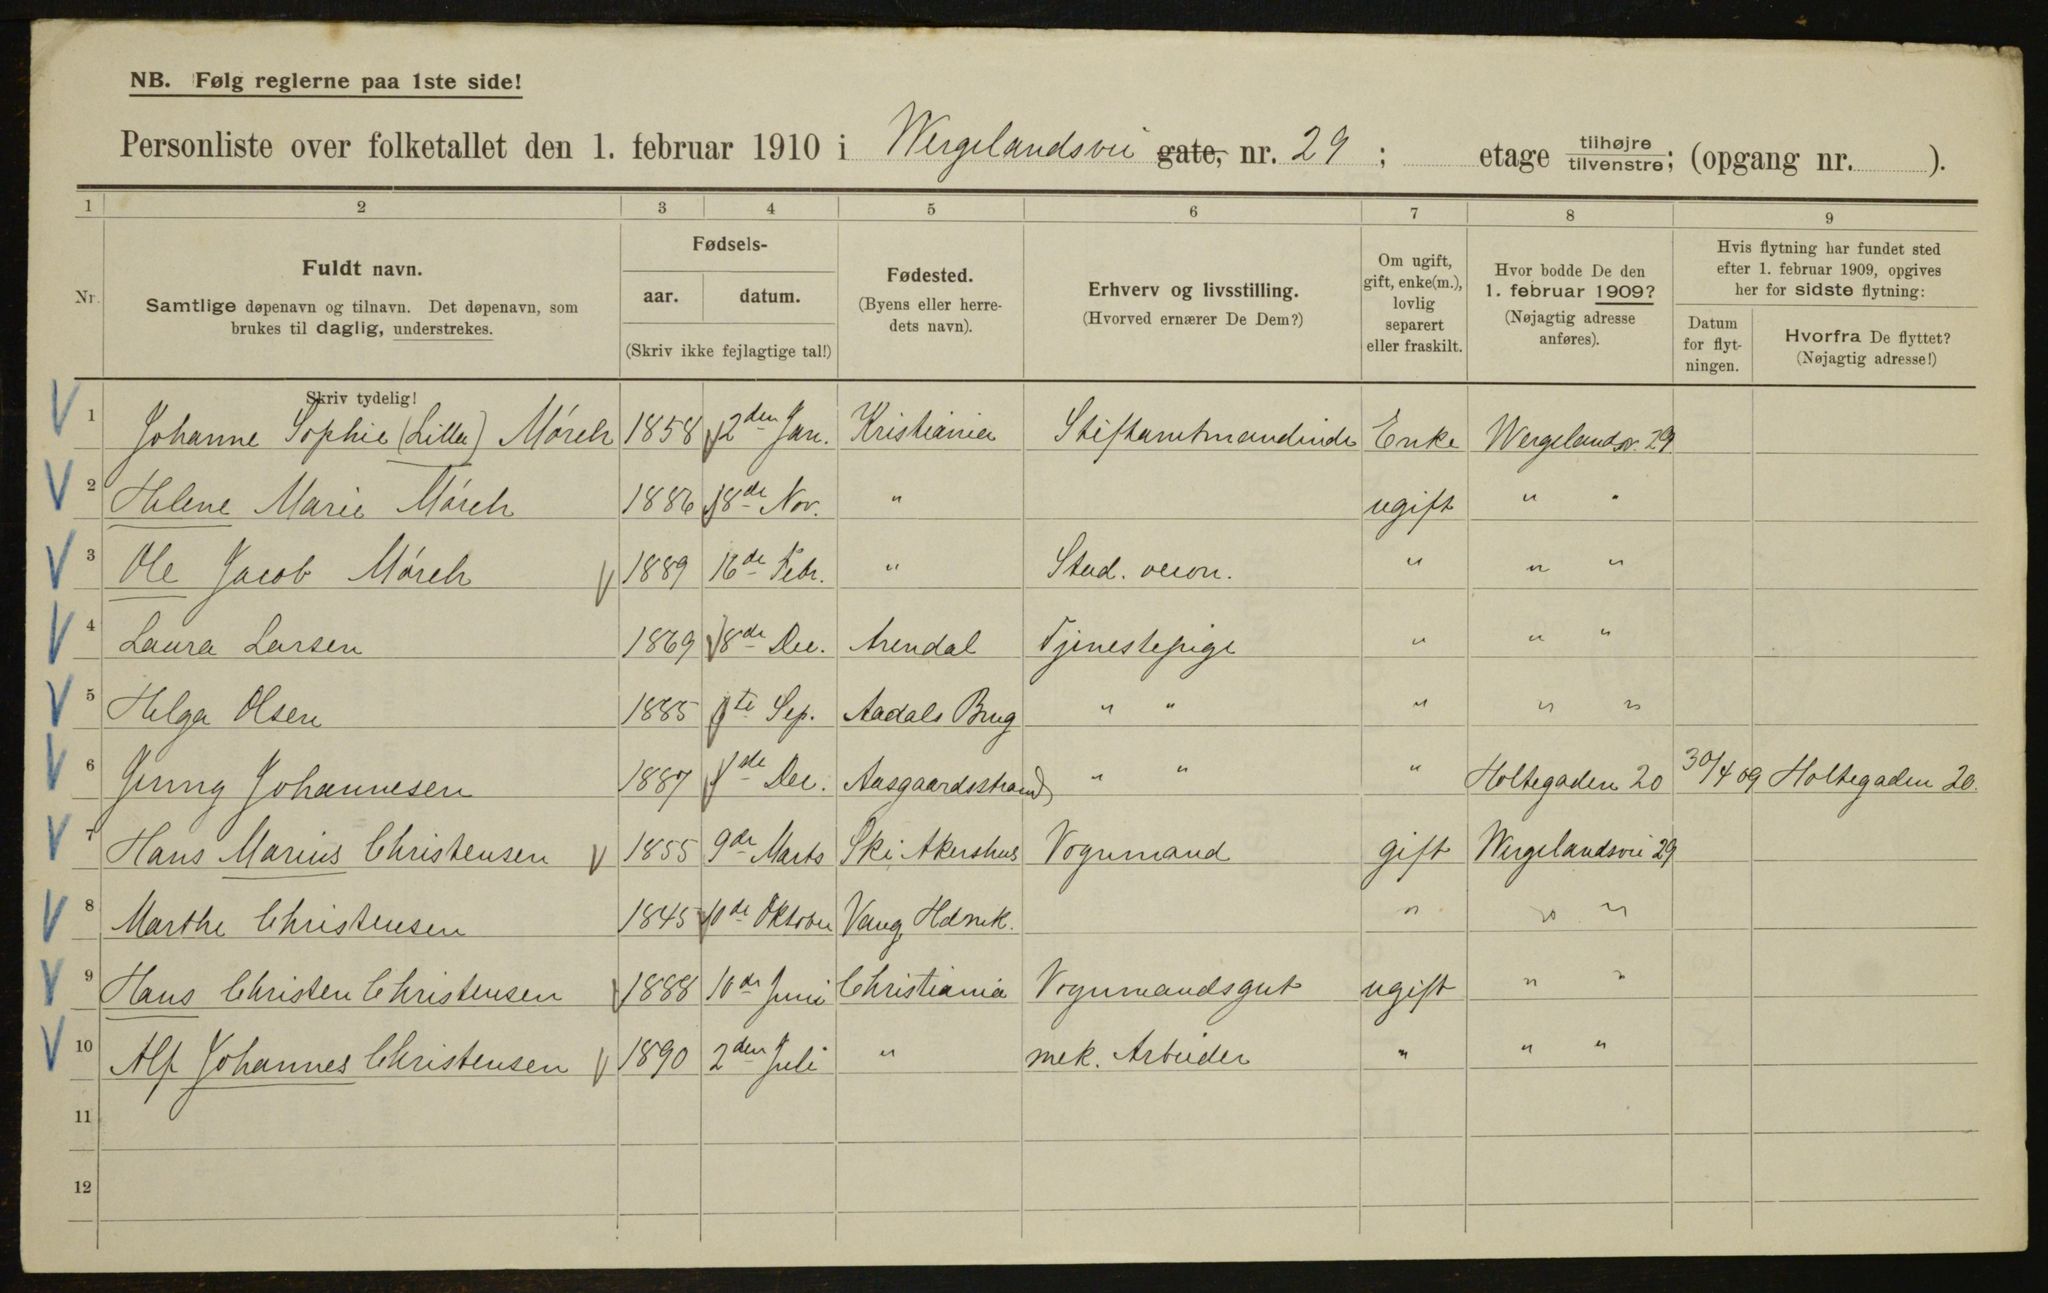 NB. Følg reglerne paa 1ste side!
Personliste over folketallet den 1. februar 1910 i Wergelandsvei gate, nr. 29 ; etage tilhøjre tilvenstre; (opgang nr. ).
1 2 3 4 5 6 7 8 9
Nr. Fuldt navn. Samtlige døpenavn og tilnavn. Det døpenavn, som brukes til daglig, understrekes.
Fødsels- aar. datum. (Skriv ikke fejlagtige tal!)
Fødested. (Byens eller herredets navn).
Erhverv og livsstilling. (Hvorved ernærer De Dem?)
Om ugift, gift, enke(m.), lovlig separert eller fraskilt.
Hvor bodde De den 1. februar 1909? (Nøjagtig adresse anføres).
Hvis flytning har fundet sted efter 1. februar 1909, opgives her for sidste flytning:
Datum for flytningen. Hvorfra De flyttet? (Nøjagtig adresse!)
Skriv tydelig!
1 Johanne Sophie (Lilla) Mórch 1858 2den Jan. Kristiania Stiftamtmandinde Enke Wergelandsv. 29
2 Helene Marie Mórch 1886 18de Nov. " ugift " "
3 Ole Jacob Mórch 1889 16de Febr. " Stud. oecon. " " "
4 Laura Larsen 1869 8de Dec. Arendal Tjenestepige " " "
5 Helga Olsen 1885 Sep. Aadals Brug " " " " "
6 Jenny Johannesen 1887 Dec. Aasgaardsstrand " " " Holtegaden 20 30/4 09 Holtegaden 20.
7 Hans Marius Christensen 1855 9de Marts Ski Akershus Vognmand gift Wergelandsvei 29
8 Marthe Christensen 1845 10de Oktober Vang, Hdmk. " " "
9 Hans Christen Christensen 1888 10de Juni Christiania Vognmandsgut ugift " "
10 Alf Johannes Christensen 1890 2den Juli " mek. Arbeider " " "
11
12